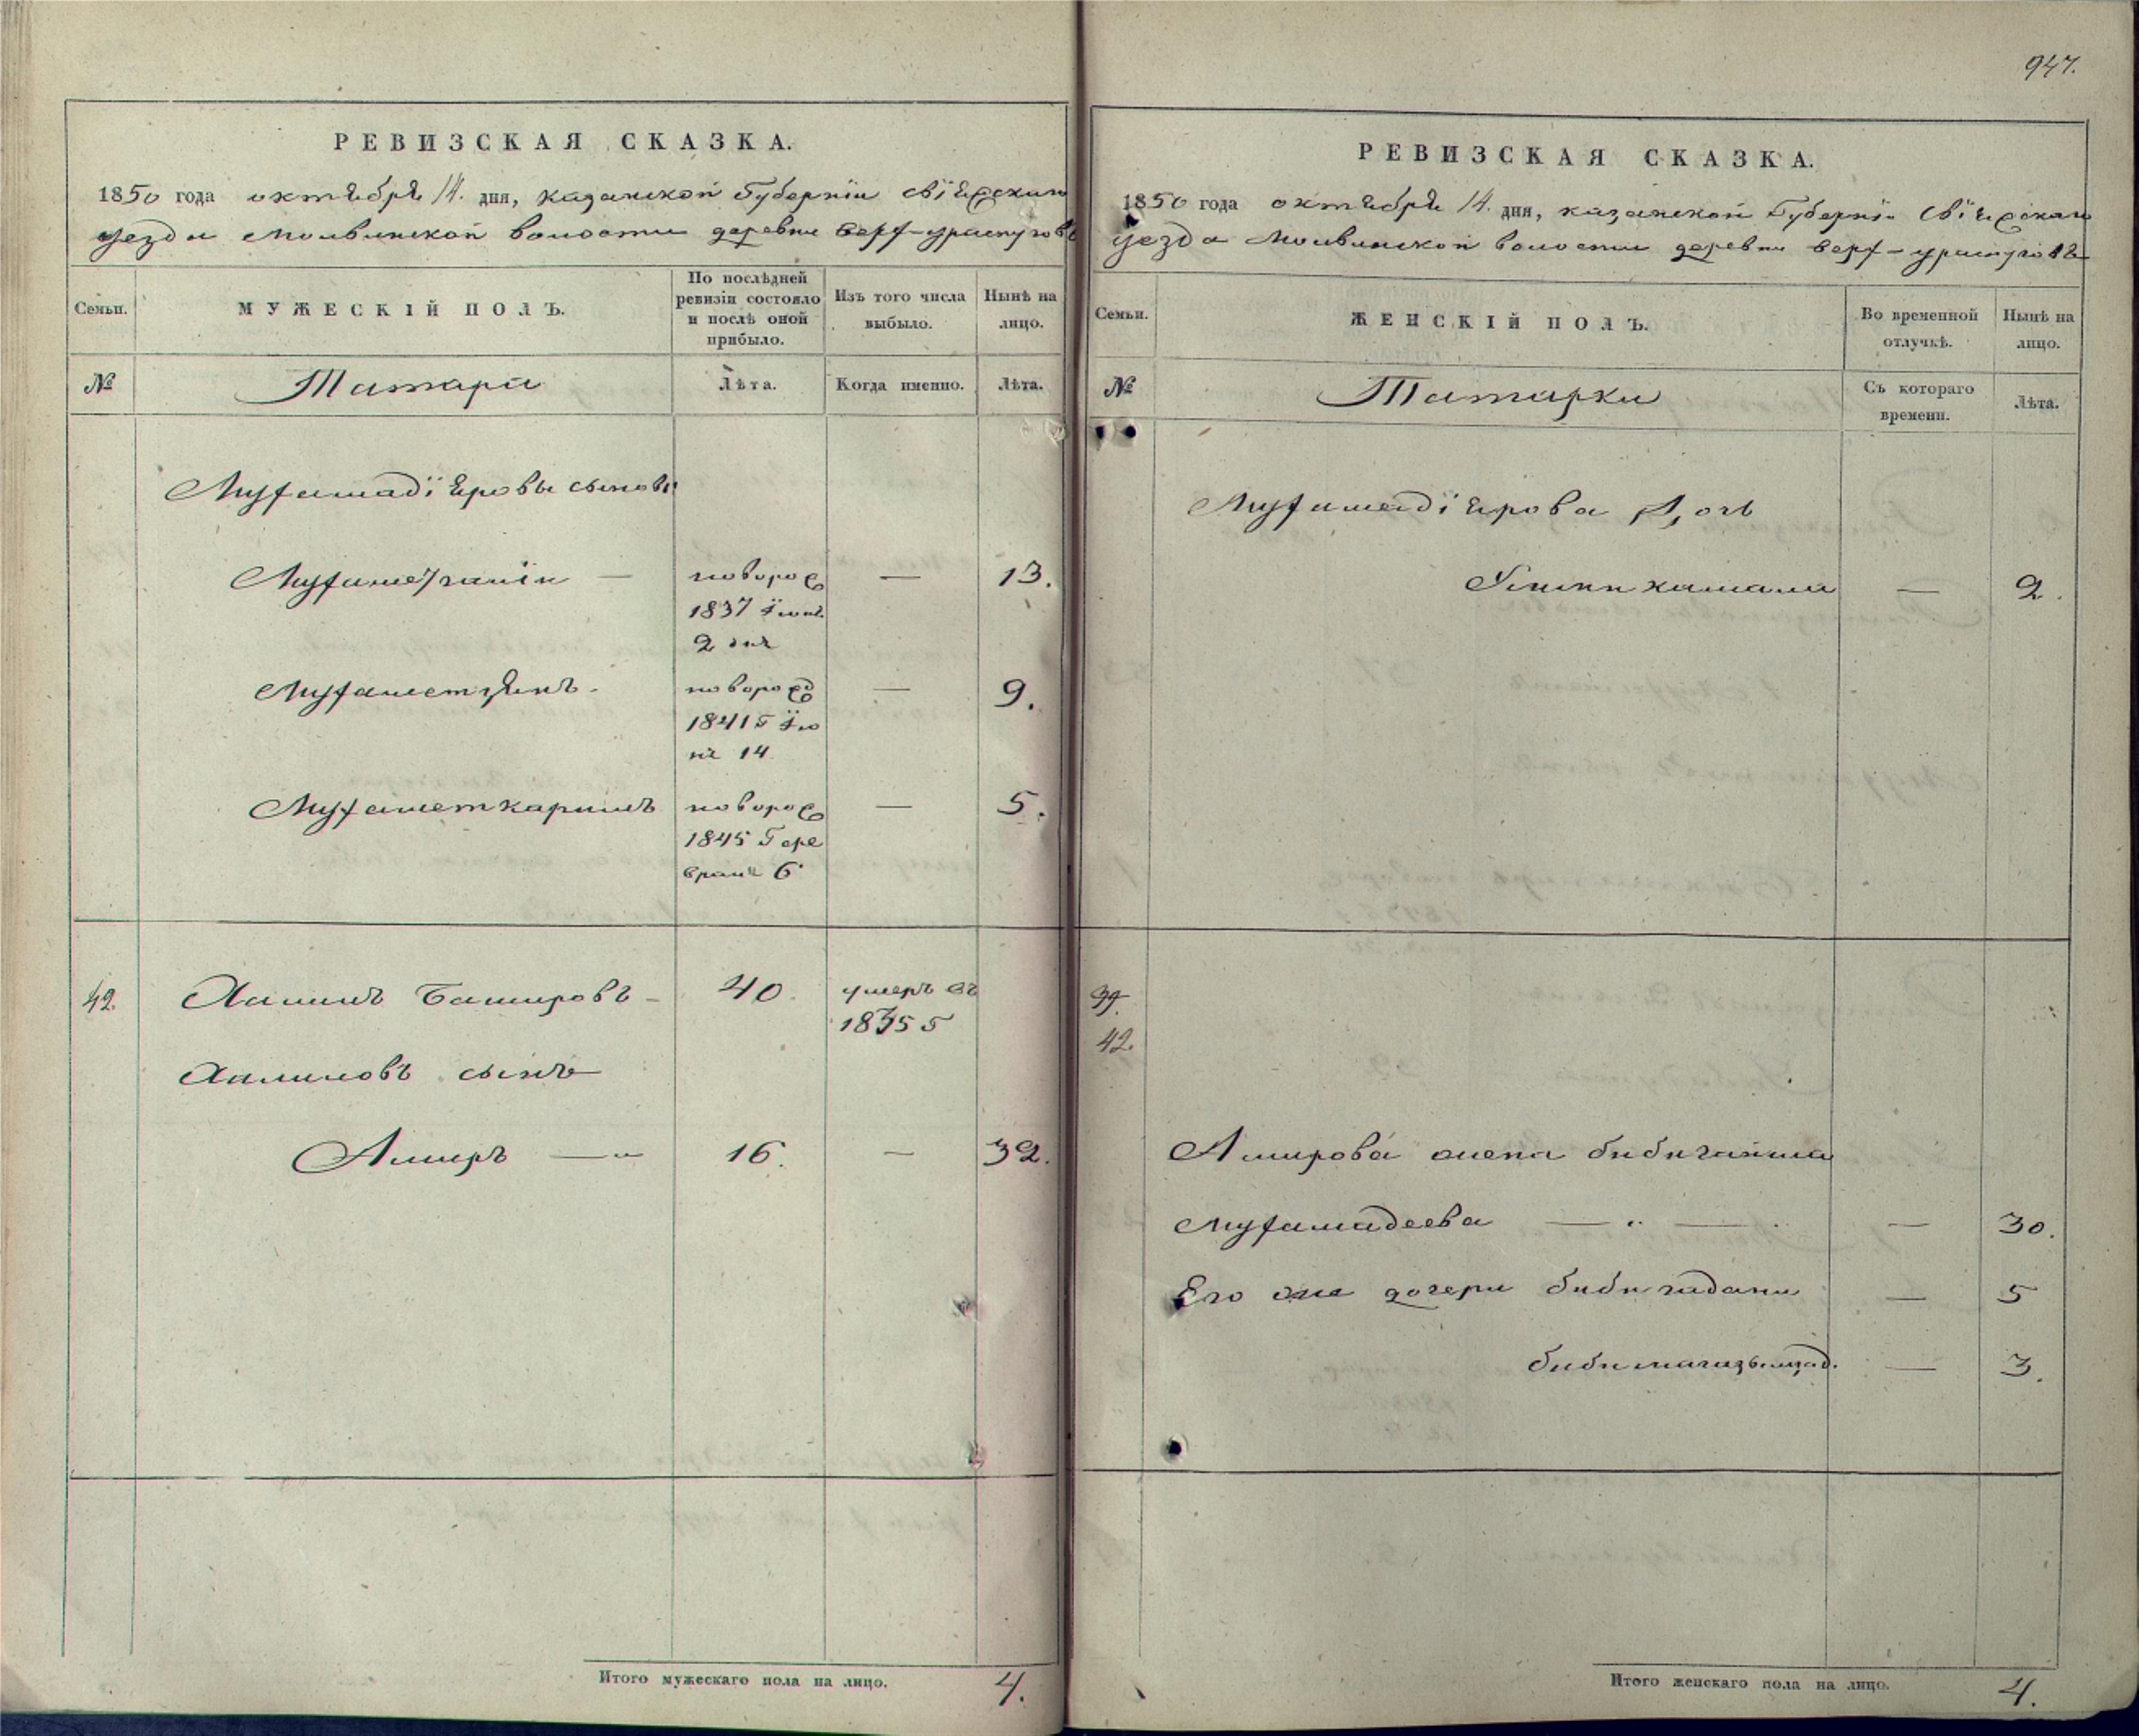 947.
РЕВИЗСКАЯ СКАЗКА.
1850 года октября 14. дня, казанской Губернїи свїяжскаго
уезда Молвинской волости деревни верх-ураспугова
Семьи.
МУЖЕСКІЙ ПОЛЪ.
По послѣдней ревизіи состояло и послѣ оной прибыло.
Изъ того числа выбыло.
Нынѣ на лицо.
№
Татары
Лѣта.
Когда именно.
Лѣта.
Мухамадїяровы сыновья
новорож
13.
1837 Їюня
2 дня
Мухаметзянъ
новорожд
9.
18415 Їю
ня 14
Мухаметкаримъ
новорож
5.
1845 Г фе
враля 6
42.
Халимъ Башировъ
40.
умеръ въ
18355
Халимовъ сынъ
Амиръ
16.
32.
Итого мужескаго пола на лицо.
4.
РЕВИЗСКАЯ СКАЗКА.
1850 года октября 14. дня, казанской Губернїи Свїяжскаго
уезда Молвинской волости деревни верх-ураспугова
Семьи.
ЖЕНСКІЙ ПОЛЪ.
Во временной отлучкѣ.
Нынѣ на лицо.
№
Татарки
Съ котораго времени.
Лѣта.
Мухамадїярова Дочь
2.
39.
42.
Амирова жена бибигайша
Мухамадеева
30.
Его же дочери биби
5
биби
3.
Итого женскаго пола на лицо.
4.